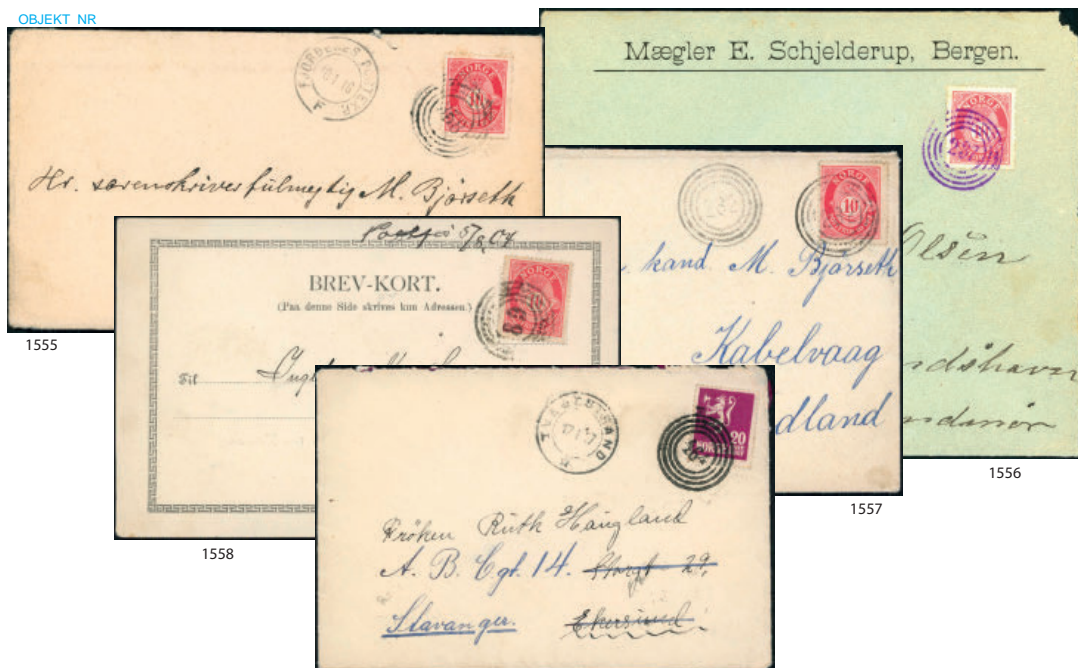 OBJEKT NR
NORGE
10
Hr. sorenskriverfulmegtig M. Bjørseth
1555
Mægler E. Schjelderup, Bergen.
NORGE
237
Olsen
1556
NORGE
10
kand. M. Bjørseth
Kabelvaag
dland
1557
5/8 04
BREV-KORT.
(Paa denne Side skrives kun Adressen.)
NORGE
Til
1558
TVEDESTRAND
20
NORGE
Frøken Ruth Haugland
A. B. Cgt. 14. Storgt 29.
Stavanger. Ekersund